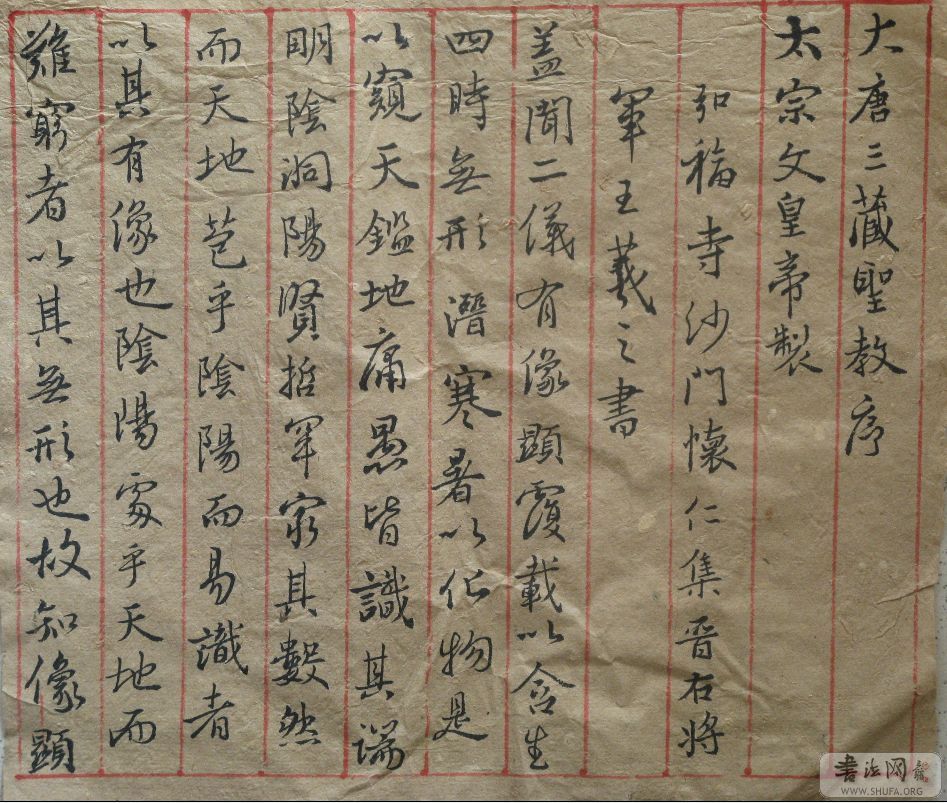 大唐三藏聖教序
太宗文皇帝製
弘福寺沙門懷仁集晉右將
軍王羲之書
蓋聞二儀有像顯覆載以含生
四時無形潛寒暑以化物是
以窺天鑑地庸愚皆識其端
明陰洞陽賢哲罕窮其數然
而天地苞乎陰陽而易識者
以其有像也陰陽處乎天地而
難窮者以其無形也故知像顯
書法网
WWW.SHUFA.ORG